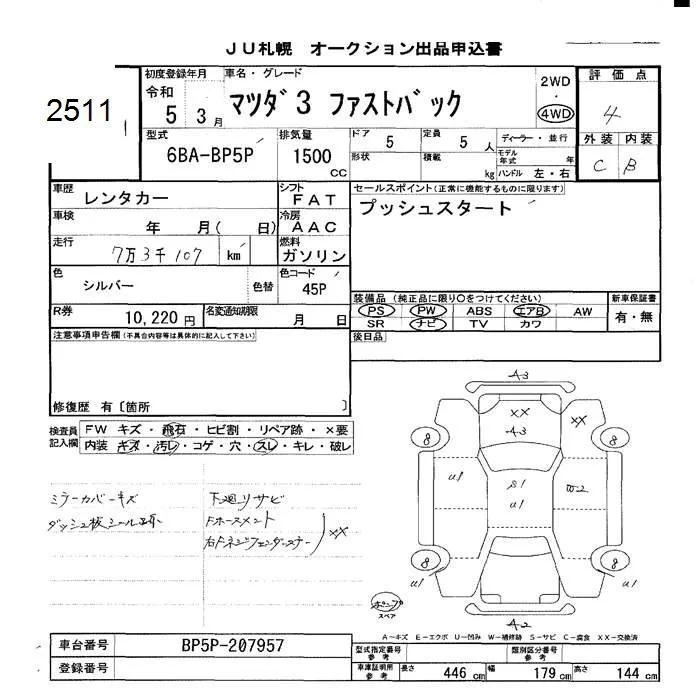 JU札幌 オークション出品申込書
2511
初度登録年月 車名・グレード
令和 5 3月 マツダ3 ファストバック
2WD
・
4WD
評価点
4
外装 内装
C B
型式 排気量 ドア 定員 ディーラー・並行
6BA-BP5P 1500 CC 5 5 人
形状 積載 kg モデル年式 年
ハンドル 左・右
車歴 レンタカー シフト FAT
車検 年 月( 日) 冷房 AAC
走行 7万3千107 km 燃料 ガソリン
色 シルバー 色替 色コード 45P
R券 10,220円 名変通知期限 月 日
セールスポイント(正常に機能するものに限ります)
プッシュスタート
装備品(純正品に限り○をつけてください) 新車保証書
PS PW ABS エアB AW 有・無
SR ナビ TV カワ
後日品
注意事項申告欄(不具合内容等は具体的に記入して下さい)
修復歴 有〔箇所 〕
検査員記入欄 FW キズ・飛石・ヒビ割・リペア跡・×要
内装 キズ・汚レ・コゲ・穴・スレ・キレ・破レ
ミラーカバーキズ
下廻リサビ
Fホースメント
XX
A3
XX
A3
XX
8
8
U1
S1
U1
8
8
U1
U1
A2
スペア
A〜キズ E−エクボ U−凹み W−補修跡 S−サビ C−腐食 XX−交換済
車台番号 BP5P-207957
登録番号
型式指定番号 参考 類別区分番号 参考
車庫証明用 参考 長さ 446 cm 幅 179 cm 高さ 144 cm